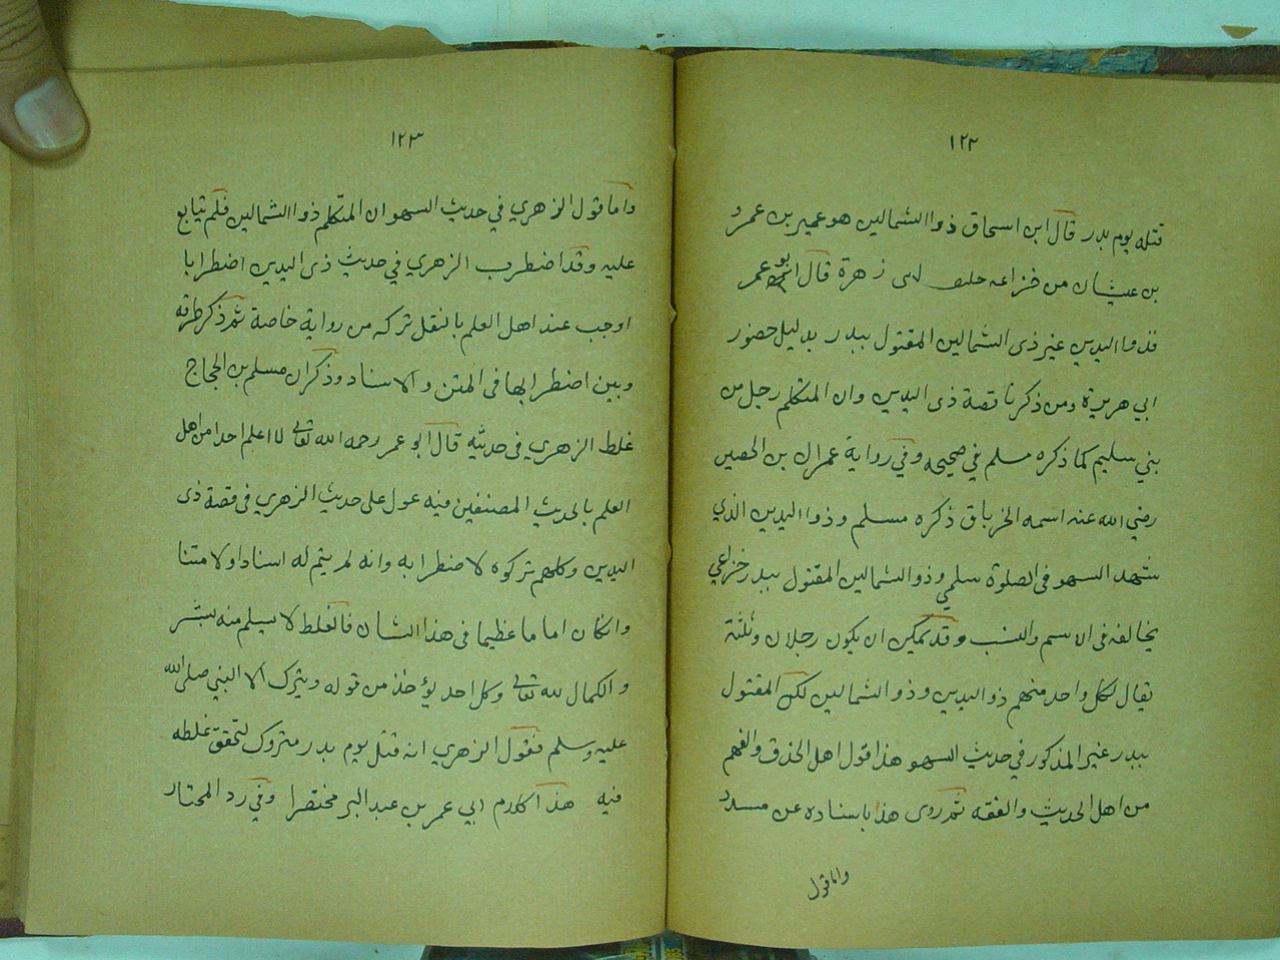 ١٢٢
قتله يوم بدر قال ابن اسحاق ذوا الشمالين هو عمير بن عمرو
بن عيشان من خزاعه حليف لبنى زهرة قال ابو عمر
فذوا اليدين غير ذى الشمالين المقتول ببدر بدليل حضور
ابي هريرة ومن ذكرنا قصة ذى اليدين وان المتكلم رجل من
بني سليم كما ذكره مسلم في صحيحه وفي رواية عمران بن الحصين
رضي الله عنه اسمه الخرباق ذكره مسلم وذوا اليدين الذي
شهد السهو فى الصلوة سلمي وذو الشمالين المقتول ببدر خزاعي
يخالفه فى الاسم والنسب وقد يمكن ان يكون رجلان وثلثة
يقال لكل واحد منهم ذو اليدين وذو الشمالين لكن المقتول
ببدر غير المذكور في حديث السهو هذا قول اهل الحذق والفهم
من اهل الحديث والفقه ثم روى هذا باسناده عن مسدد
واما قول
١٢٣
واما قول الزهري في حديث السهو ان المتكلم ذوا الشمالين فلم يتابع
عليه وقد اضطرب الزهري في حديث ذى اليدين اضطرابا
اوجب عند اهل العلم بالنقل تركه من رواية خاصة ثم ذكر طرقه
وبين اضطرابها فى المتن والاسناد وذكر ان مسلم بن الحجاج
غلط الزهري فى حديثه قال ابو عمر رحمه الله تعالى لا اعلم احدا من اهل
العلم بالحديث المصنفين فيه عول على حديث الزهري فى قصة ذى
اليدين وكلهم تركوه لاضطرابه وانه لم يتم له اسنادا ولا متنا
وانكان اماما عظيما فى هذا الشان فالغلط لا يسلم منه بشر
والكمال لله تعالى وكل احد يؤخذ من قوله ويترك الا النبي صلى الله
عليه وسلم فقول الزهري انه قتل يوم بدر متروك لتحقق غلطه
فيه هذا كلام ابي عمر بن عبد البر مختصرا وفي رد المحتار